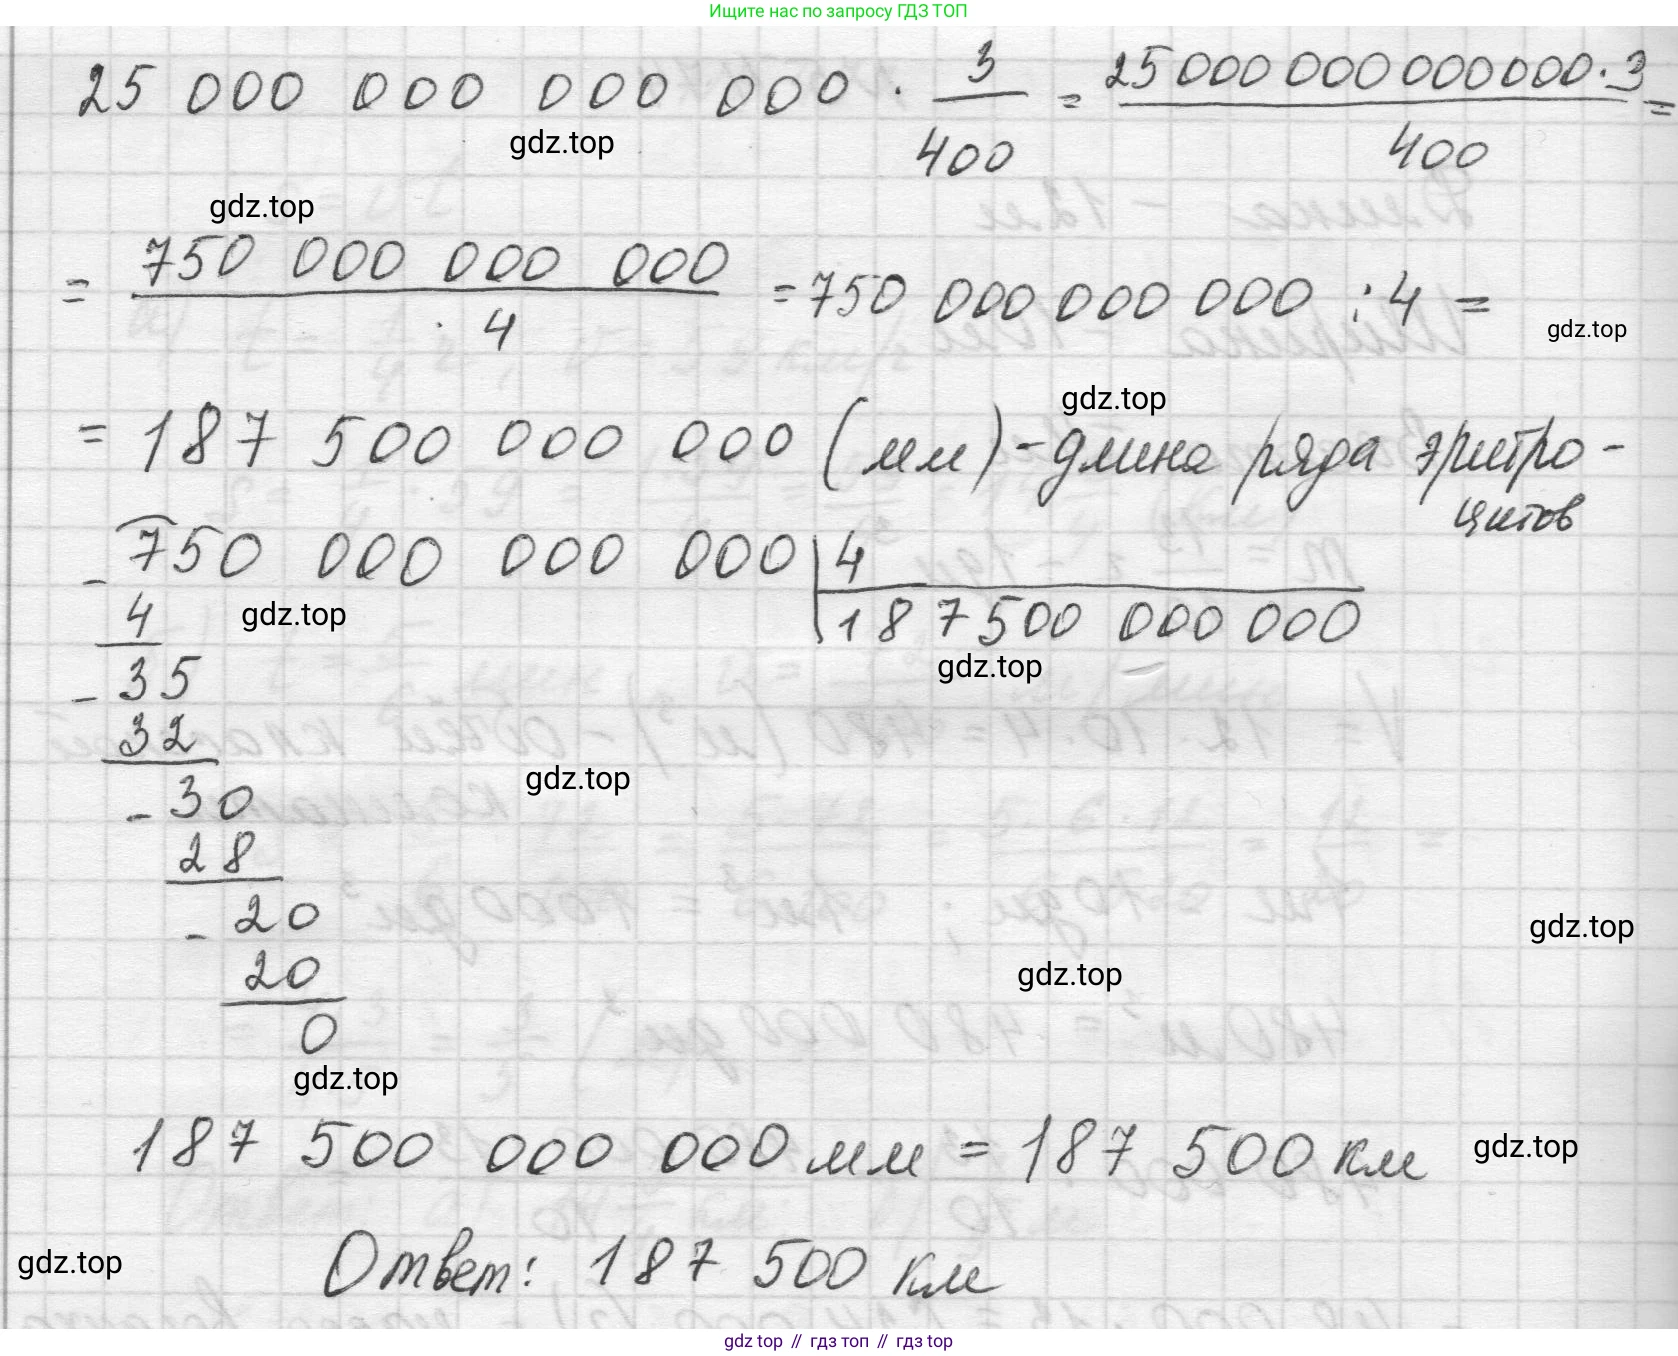 Ищите нас по запросу ГДЗ ТОП
25 000 000 000 000 · 3/400 = 25 000 000 000 000 · 3/400 =
gdz.top
gdz.top
= 750 000 000 000/4 = 750 000 000 000 : 4 =
gdz.top
gdz.top
= 187 500 000 000 (мм) - длина ряда эритро-
цитов
- 750 000 000 000 | 4
4 187 500 000 000
gdz.top
gdz.top
- 35
32
gdz.top
- 30
28
- 20
gdz.top
20
gdz.top
0
gdz.top
187 500 000 000 мм = 187 500 км
gdz.top
Ответ: 187 500 км
gdz.top
gdz top // гдз топ // гдз top